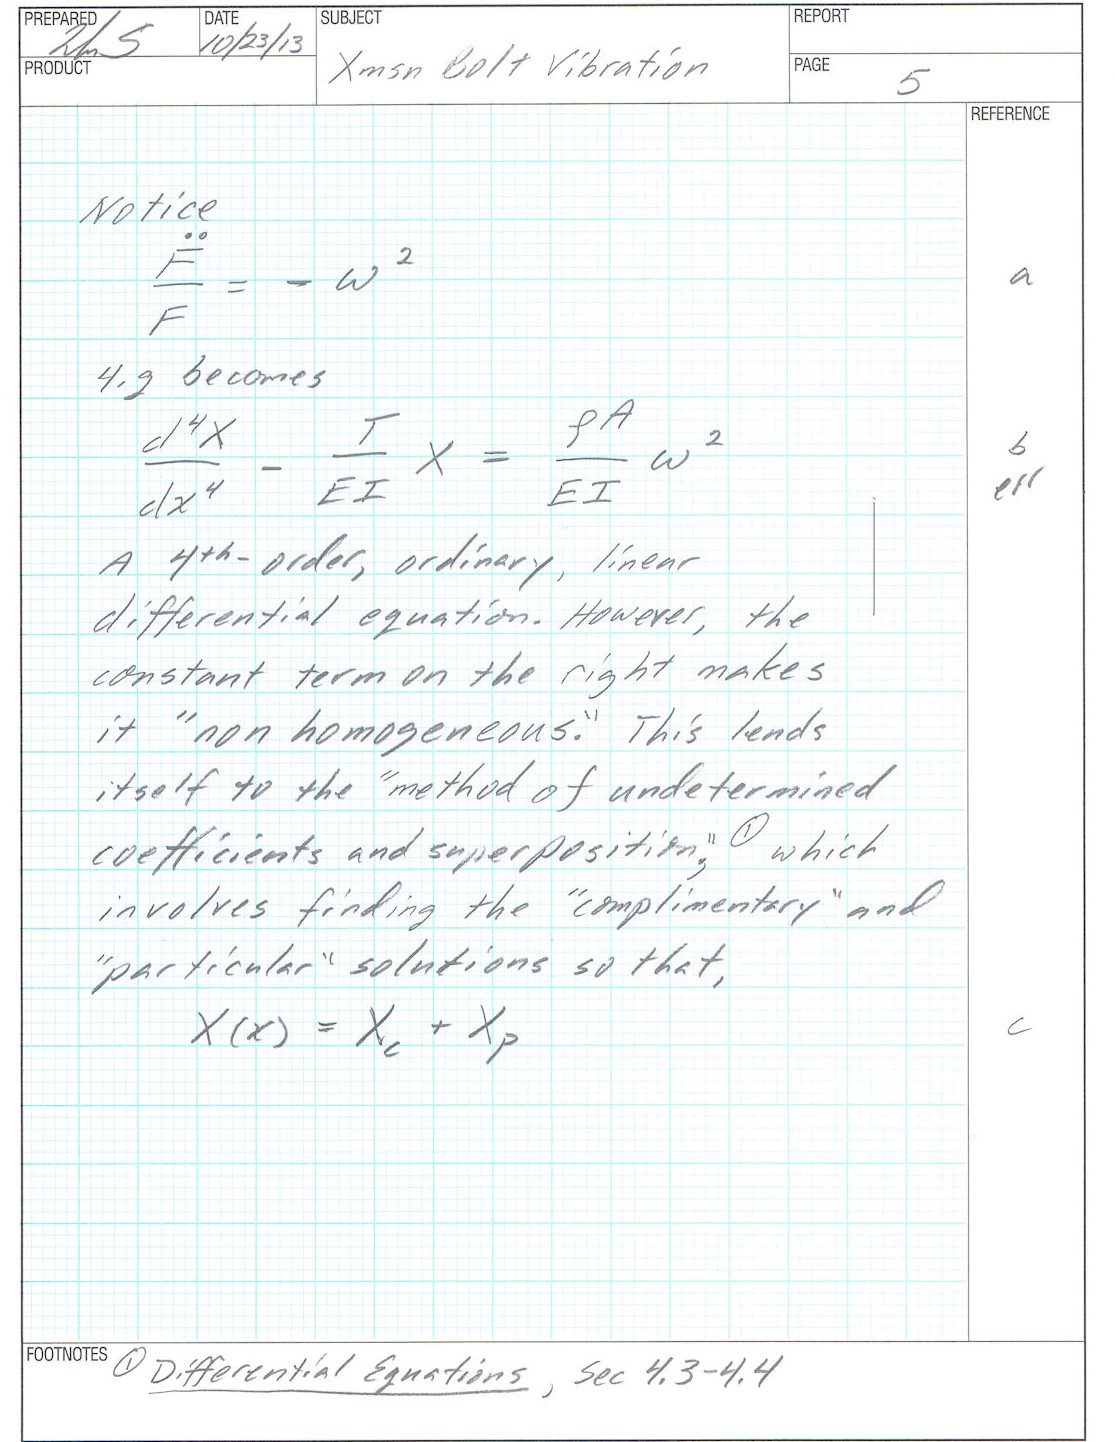 PREPARED
DATE 10/23/13
SUBJECT
Xmsn Bolt Vibration
REPORT
PRODUCT
PAGE 5
REFERENCE
Notice
F̈/F = - ω² a
4.g becomes
d⁴X/dx⁴ - T/EI X = ρA/EI ω² b
err
A 4th-order, ordinary, linear
differential equation. However, the
constant term on the right makes
it "non homogeneous." This lends
itself to the "method of undetermined
coefficients and superposition," ① which
involves finding the "complimentary" and
"particular" solutions so that,
X(x) = X_c + X_p c
FOOTNOTES ① Differential Equations, Sec 4.3-4.4